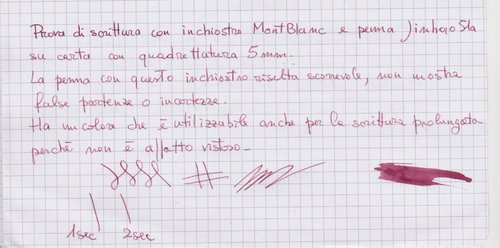 Prova di scrittura con inchiostro MontBlanc e penna Jinhao 51a
su carta con quadrettatura 5mm.
La penna con questo inchiostro risulta scorrevole, non mostra
false partenze o incertezze.
Ha un colore che è utilizzabile anche per la scrittura prolungata
perché non è affatto vistoso.
1sec 2sec